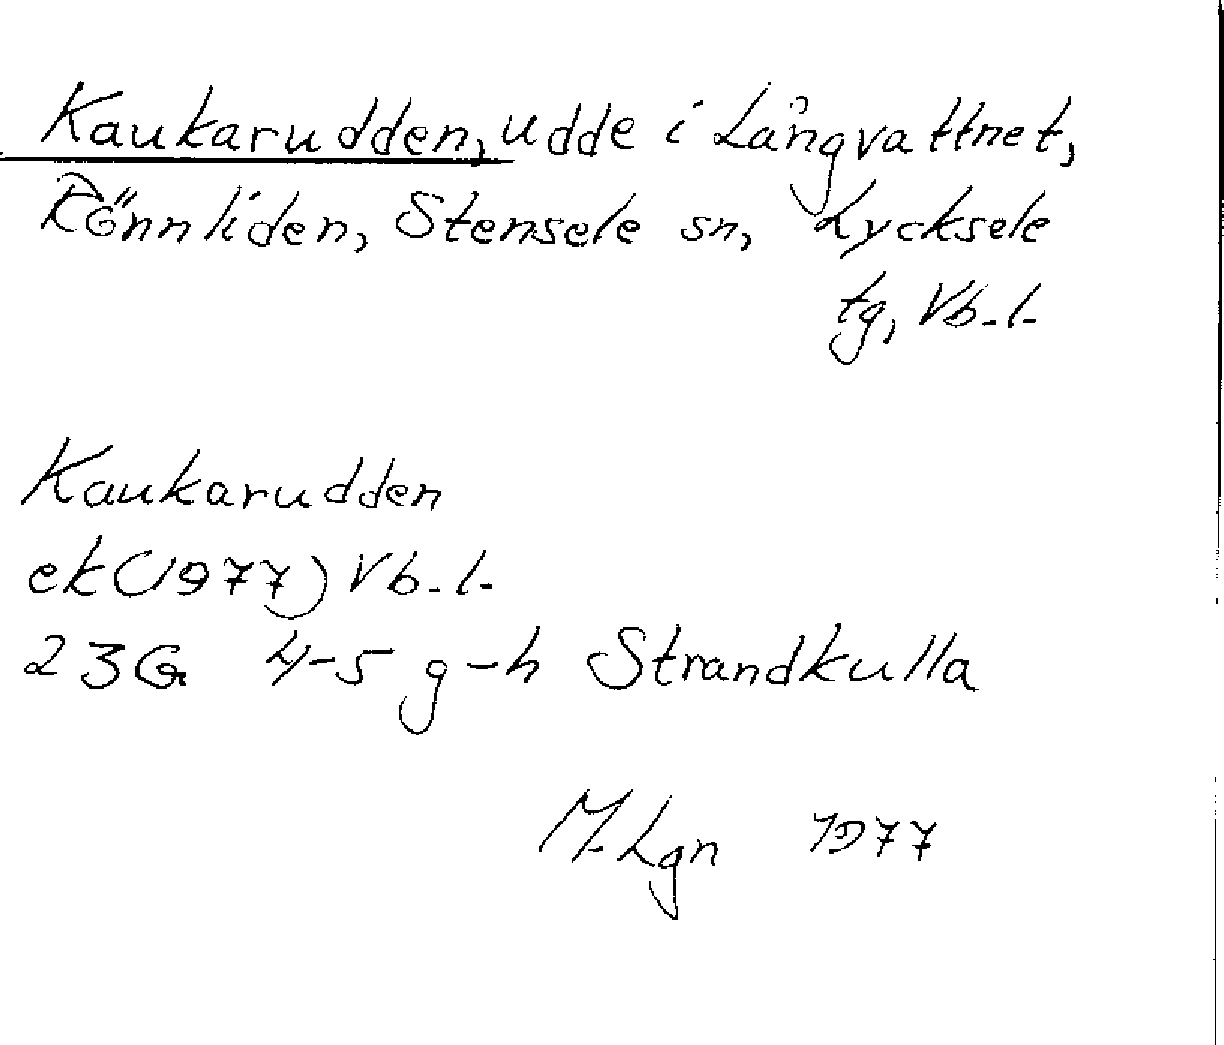 Kaukarudden, udde i Långvattnet,
Rönnliden, Stensele sn, Lycksele
tg, Vb. l.
Kaukarudden
ek (1977) Vb. l.
23G 4-5 g-h Strandkulla
M. Lgn 1977